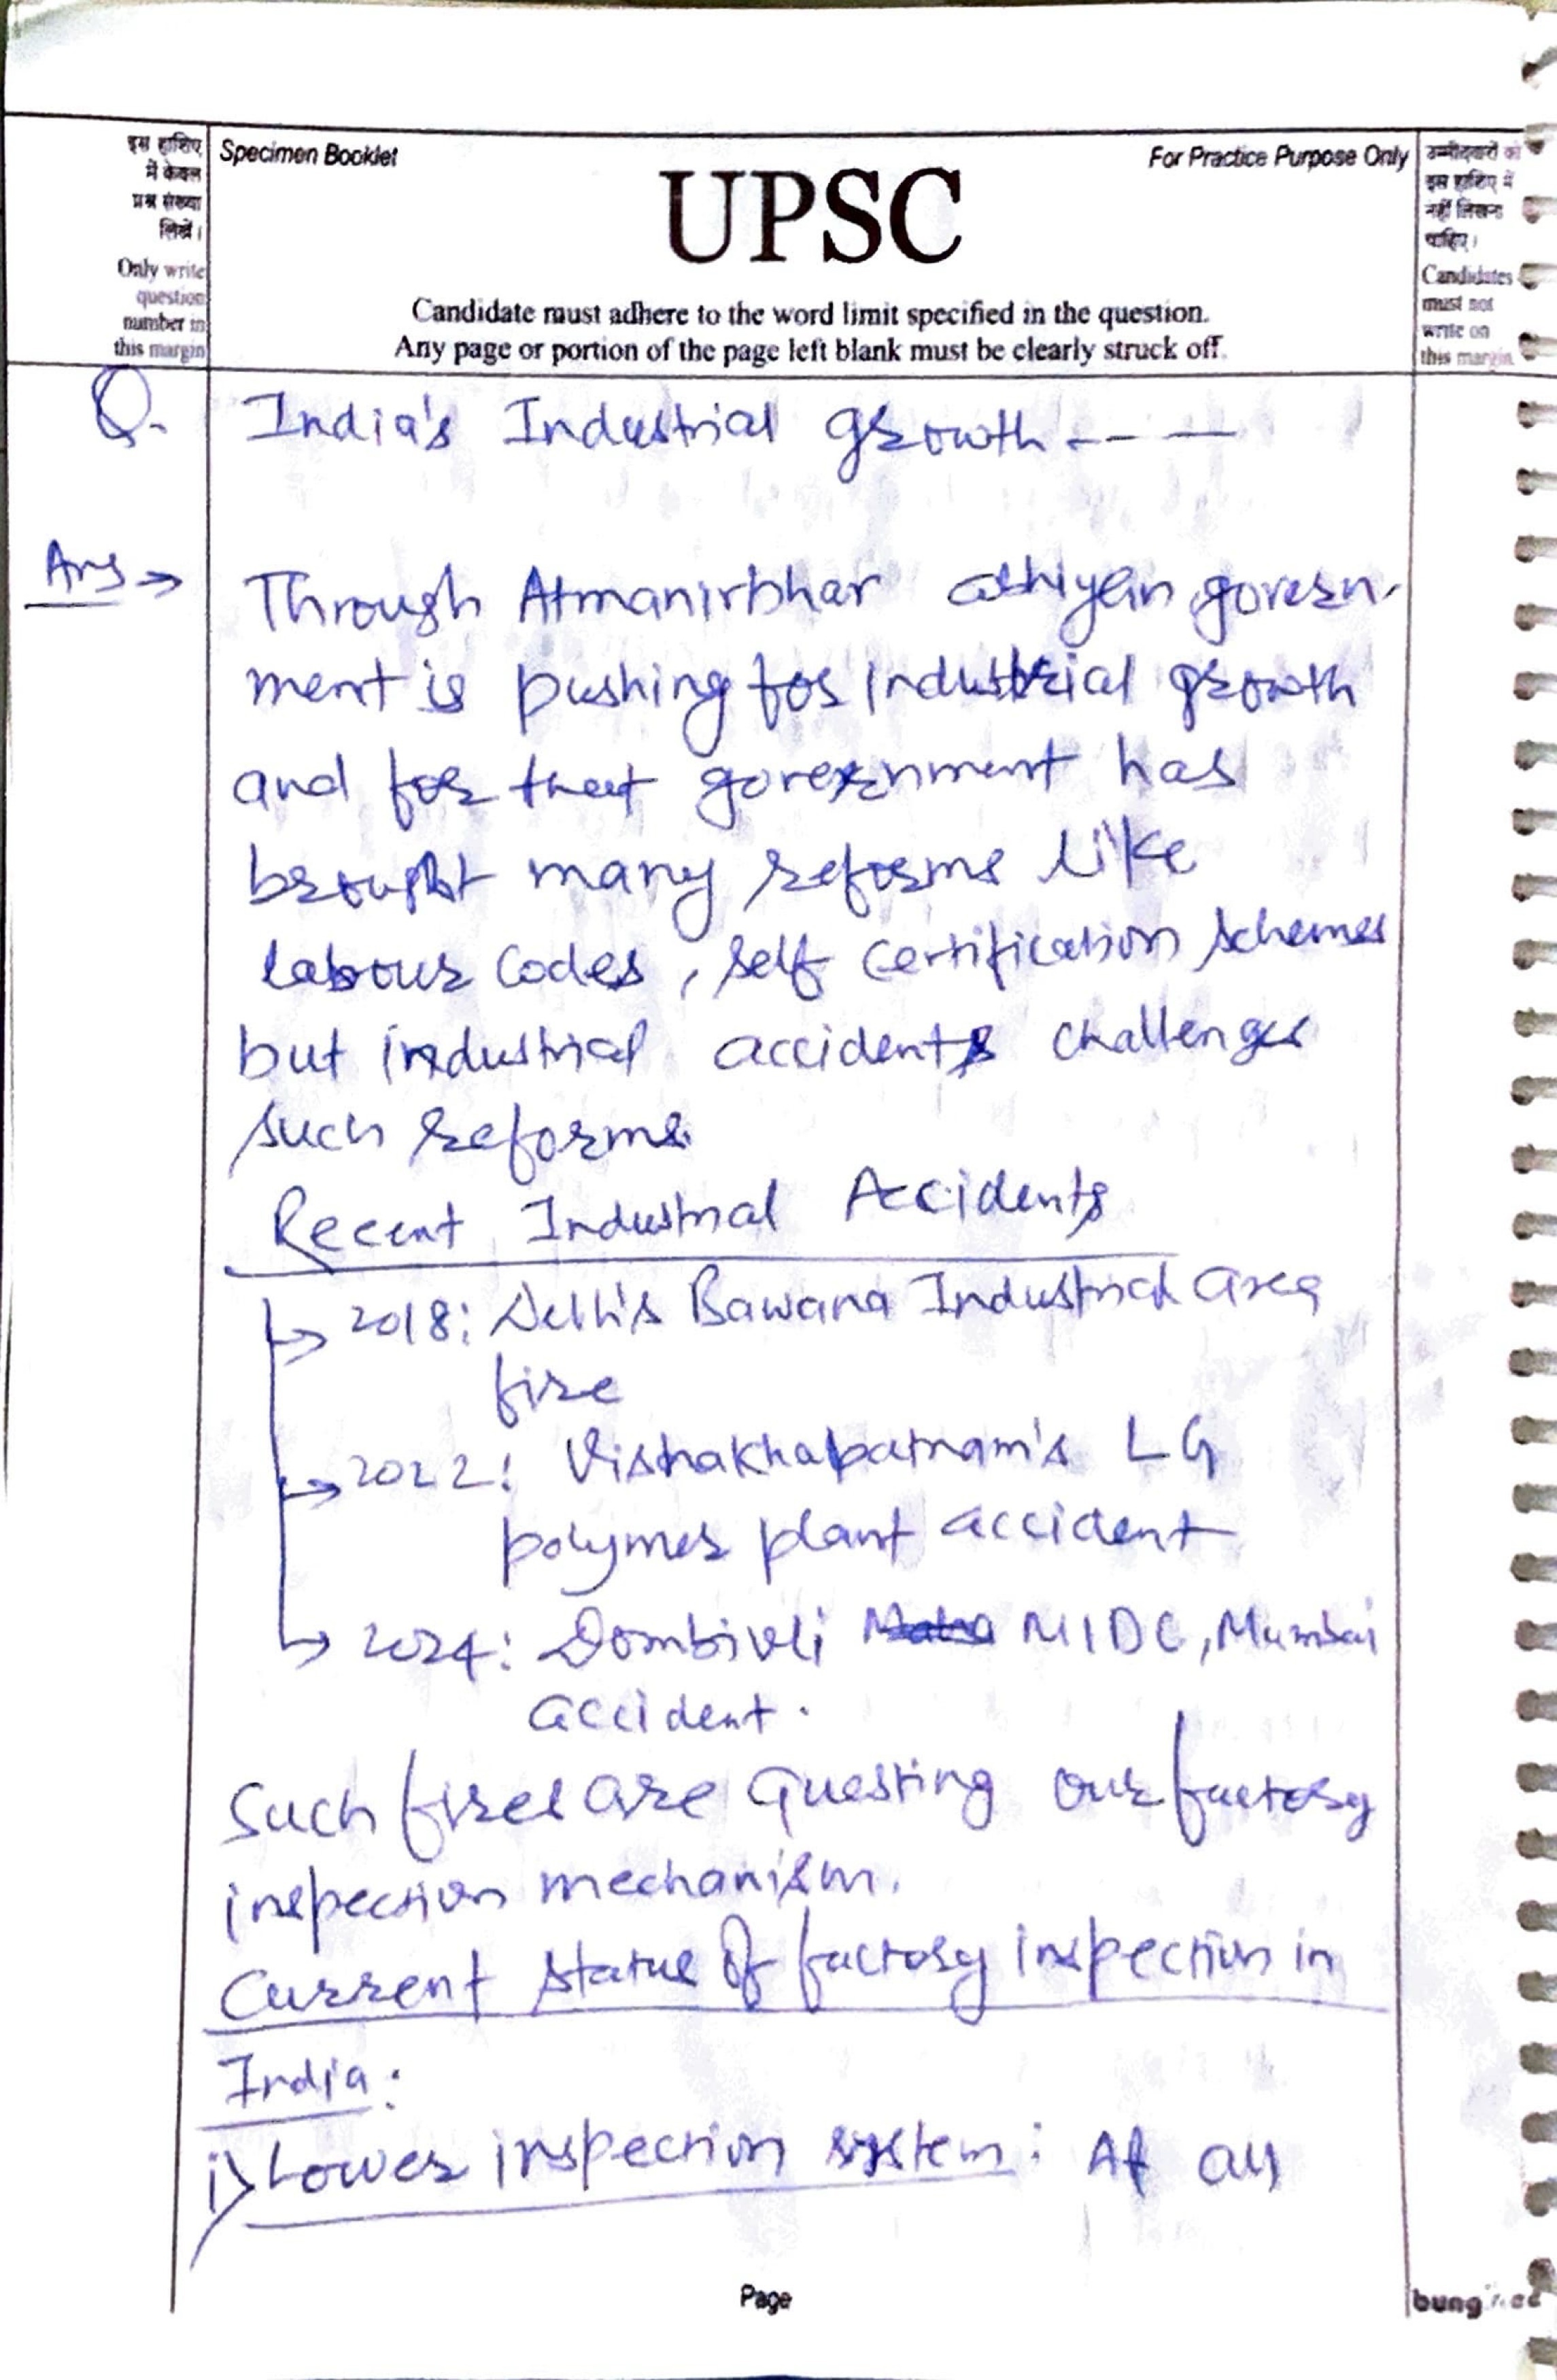 इस हाशिए
में केवल
प्रश्न संख्या
लिखें।
Only write
question
number in
this margin
Specimen Booklet
For Practice Purpose Only
UPSC
Candidate must adhere to the word limit specified in the question.
Any page or portion of the page left blank must be clearly struck off.
उम्मीदवारों को
इस हाशिए में
नहीं लिखना
चाहिए।
Candidates
must not
write on
this margin
Q. India's Industrial growth - - - —
Ans → Through Atmanirbhar govern-
ment is pushing for Industrial growth
and for that government has
brought many reforms like
labour Codes, self certification schemes
but industrial accidents challenges
such reforms
Recent Industrial Accidents
→ 2018: Delhi's Bawana Industrial area
fire
→ 2022: Vishakhapatnam's LG
polymer plant accident
→ 2024: Dombivli MIDC, Mumbai
accident.
Such fires are Questing our factory
inspection mechanism.
Current status of factory inspection in
India:
i) Lower inspection system: At all
Page